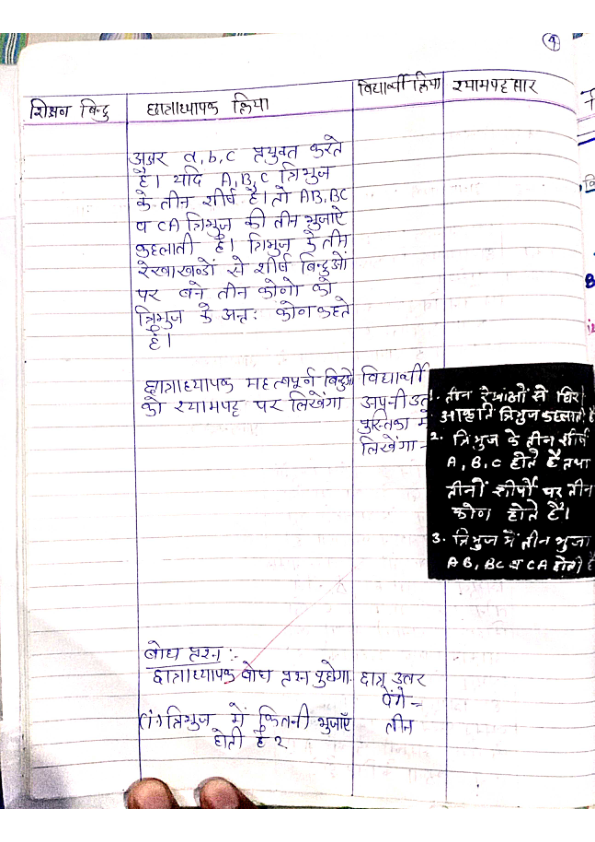 4
शिक्षण बिन्दु
छात्राध्यापक क्रिया
विद्यार्थी क्रिया
श्यामपट्ट सार
अक्षर a, b, c प्रयुक्त करते
है। यदि A, B, C त्रिभुज
के तीन शीर्ष है। तो AB, BC
व CA त्रिभुज की तीन भुजाऐं
कहलाती है। त्रिभुज के तीन
रेखाखण्डों से शीर्ष बिन्दुओं
पर बने तीन कोणो को
त्रिभुज के अन्तः कोण कहते
है।
छात्राध्यापक महत्वपूर्ण बिन्दुओं
को श्यामपट्ट पर लिखेंगा
विद्यार्थी
अपनी उत्त
पुस्तिका में
लिखेंगा -
1. तीन रेखाओं से घिरी
आकृति त्रिभुज कहलाती है
2. त्रिभुज के तीन शीर्ष
A, B, C होते है तथा
तीनों शीर्षों पर तीन
कोण होते है।
3. त्रिभुज में तीन भुजा
AB, BC व CA होती है
बोध प्रश्न :-
छात्राध्यापक बोध प्रश्न पुछेगा
छात्र उत्तर
देंगे -
(i) त्रिभुज में कितनी भुजाएँ
होती है ?
तीन